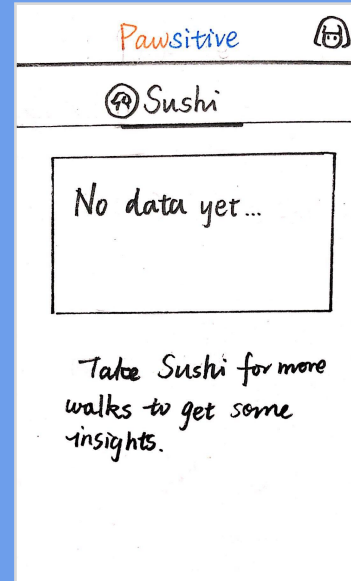 Pawsitive
Sushi
No data yet...
Take Sushi for more
walks to get some
insights.